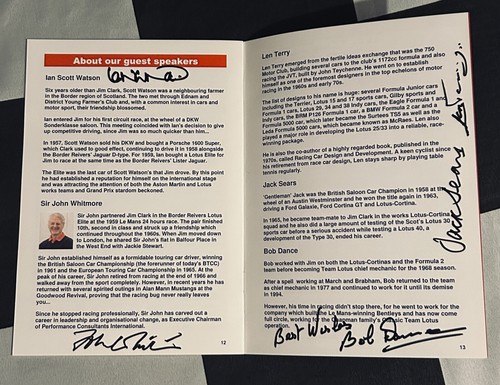 About our guest speakers
Ian Scott Watson
Six years older than Jim Clark, Scott Watson was a neighbouring farmer
in the Border region of Scotland. The two met through Ednam and
District Young Farmer's Club and, with a common interest in cars and
motor sport, their friendship blossomed.
Ian entered Jim for his first circuit race, at the wheel of a DKW
Sonderklasse saloon. This meeting coincided with Ian's decision to give
up competitive driving, since Jim was so much quicker than him...
In 1957, Scott Watson sold his DKW and bought a Porsche 1600 Super,
which Clark used to good effect, continuing to drive it in 1958 alongside
the Border Reivers' Jaguar D-type. For 1959, Ian bought a Lotus Elite for
Jim to race at the same time as the Border Reivers' Lister Jaguar.
The Elite was the last car of Scott Watson's that Jim drove. By this point
he had established a reputation for himself on the international stage
and was attracting the attention of both the Aston Martin and Lotus
works teams and Grand Prix stardom beckoned.
Sir John Whitmore
Sir John partnered Jim Clark in the Border Reivers Lotus
Elite at the 1959 Le Mans 24 hours race. The pair finished
10th, second in class and struck up a friendship which
continued throughout the 1960s. When Jim moved down
to London, he shared Sir John's flat in Balfour Place in
the West End with Jackie Stewart.
Sir John established himself as a formidable touring car driver, winning
the British Saloon Car Championship (the forerunner of today's BTCC)
in 1961 and the European Touring Car Championship in 1965. At the
peak of his career, Sir John retired from racing at the end of 1966 and
walked away from the sport completely. However, in recent years he has
returned with several spirited outings in Alan Mann Mustangs at the
Goodwood Revival, proving that the racing bug never really leaves
you...
Since he stopped racing professionally, Sir John has carved out a
career in leadership and organisational change, as Executive Chairman
of Performance Consultants International.
12
Len Terry
Len Terry emerged from the fertile ideas exchange that was the 750
Motor Club, building several cars to the club's 1172cc formula and also
racing the JVT, built by John Teychenne. He went on to establish
himself as one of the foremost designers in the top echelons of motor
racing in the 1960s and early 70s.
The list of designs to his name is huge: several Formula Junior cars
including the Terrier, Lotus 15 and 17 sports cars, Gilby sports and
Formula 1 cars, Lotus 29, 34 and 38 Indy cars, the Eagle Formula 1 and
Indy cars, the BRM P126 Formula 1 car, a BMW Formula 2 car and a
Formula 5000 car, which later became the Surtees TS5 as well as the
Leda Formula 5000 cars, which became known as McRaes. Len also
played a major role in developing the Lotus 25/33 into a reliable, race-
winning package.
He is also the co-author of a highly regarded book, published in the
1970s, called Racing Car Design and Development. A keen cyclist since
his retirement from race car design, Len stays sharp by playing table
tennis regularly.
Jack Sears
'Gentleman' Jack was the British Saloon Car Champion in 1958 at the
wheel of an Austin Westminster and he won the title again in 1963,
driving a Ford Galaxie, Ford Cortina GT and Lotus-Cortina.
In 1965, he became team-mate to Jim Clark in the works Lotus-Cortina
squad and he also did a large amount of testing of the Scot's Lotus 30
sports car before a serious accident while testing a Lotus 40, a
development of the Type 30, ended his career.
Jack Sears
Bob Dance
Bob worked with Jim on both the Lotus-Cortinas and the Formula 2
team before becoming Team Lotus chief mechanic for the 1968 season.
After a spell working at March and Brabham, Bob returned to the team
as chief mechanic in 1977 and continued to work for it until its demise
in 1994.
However, his time in racing didn't stop there, for he went to work for the
company which built the Le Mans-winning Bentleys and has now come
full circle, working for the Chapman family's Classic Team Lotus
operation.
Best Wishes
Bob Dance
13